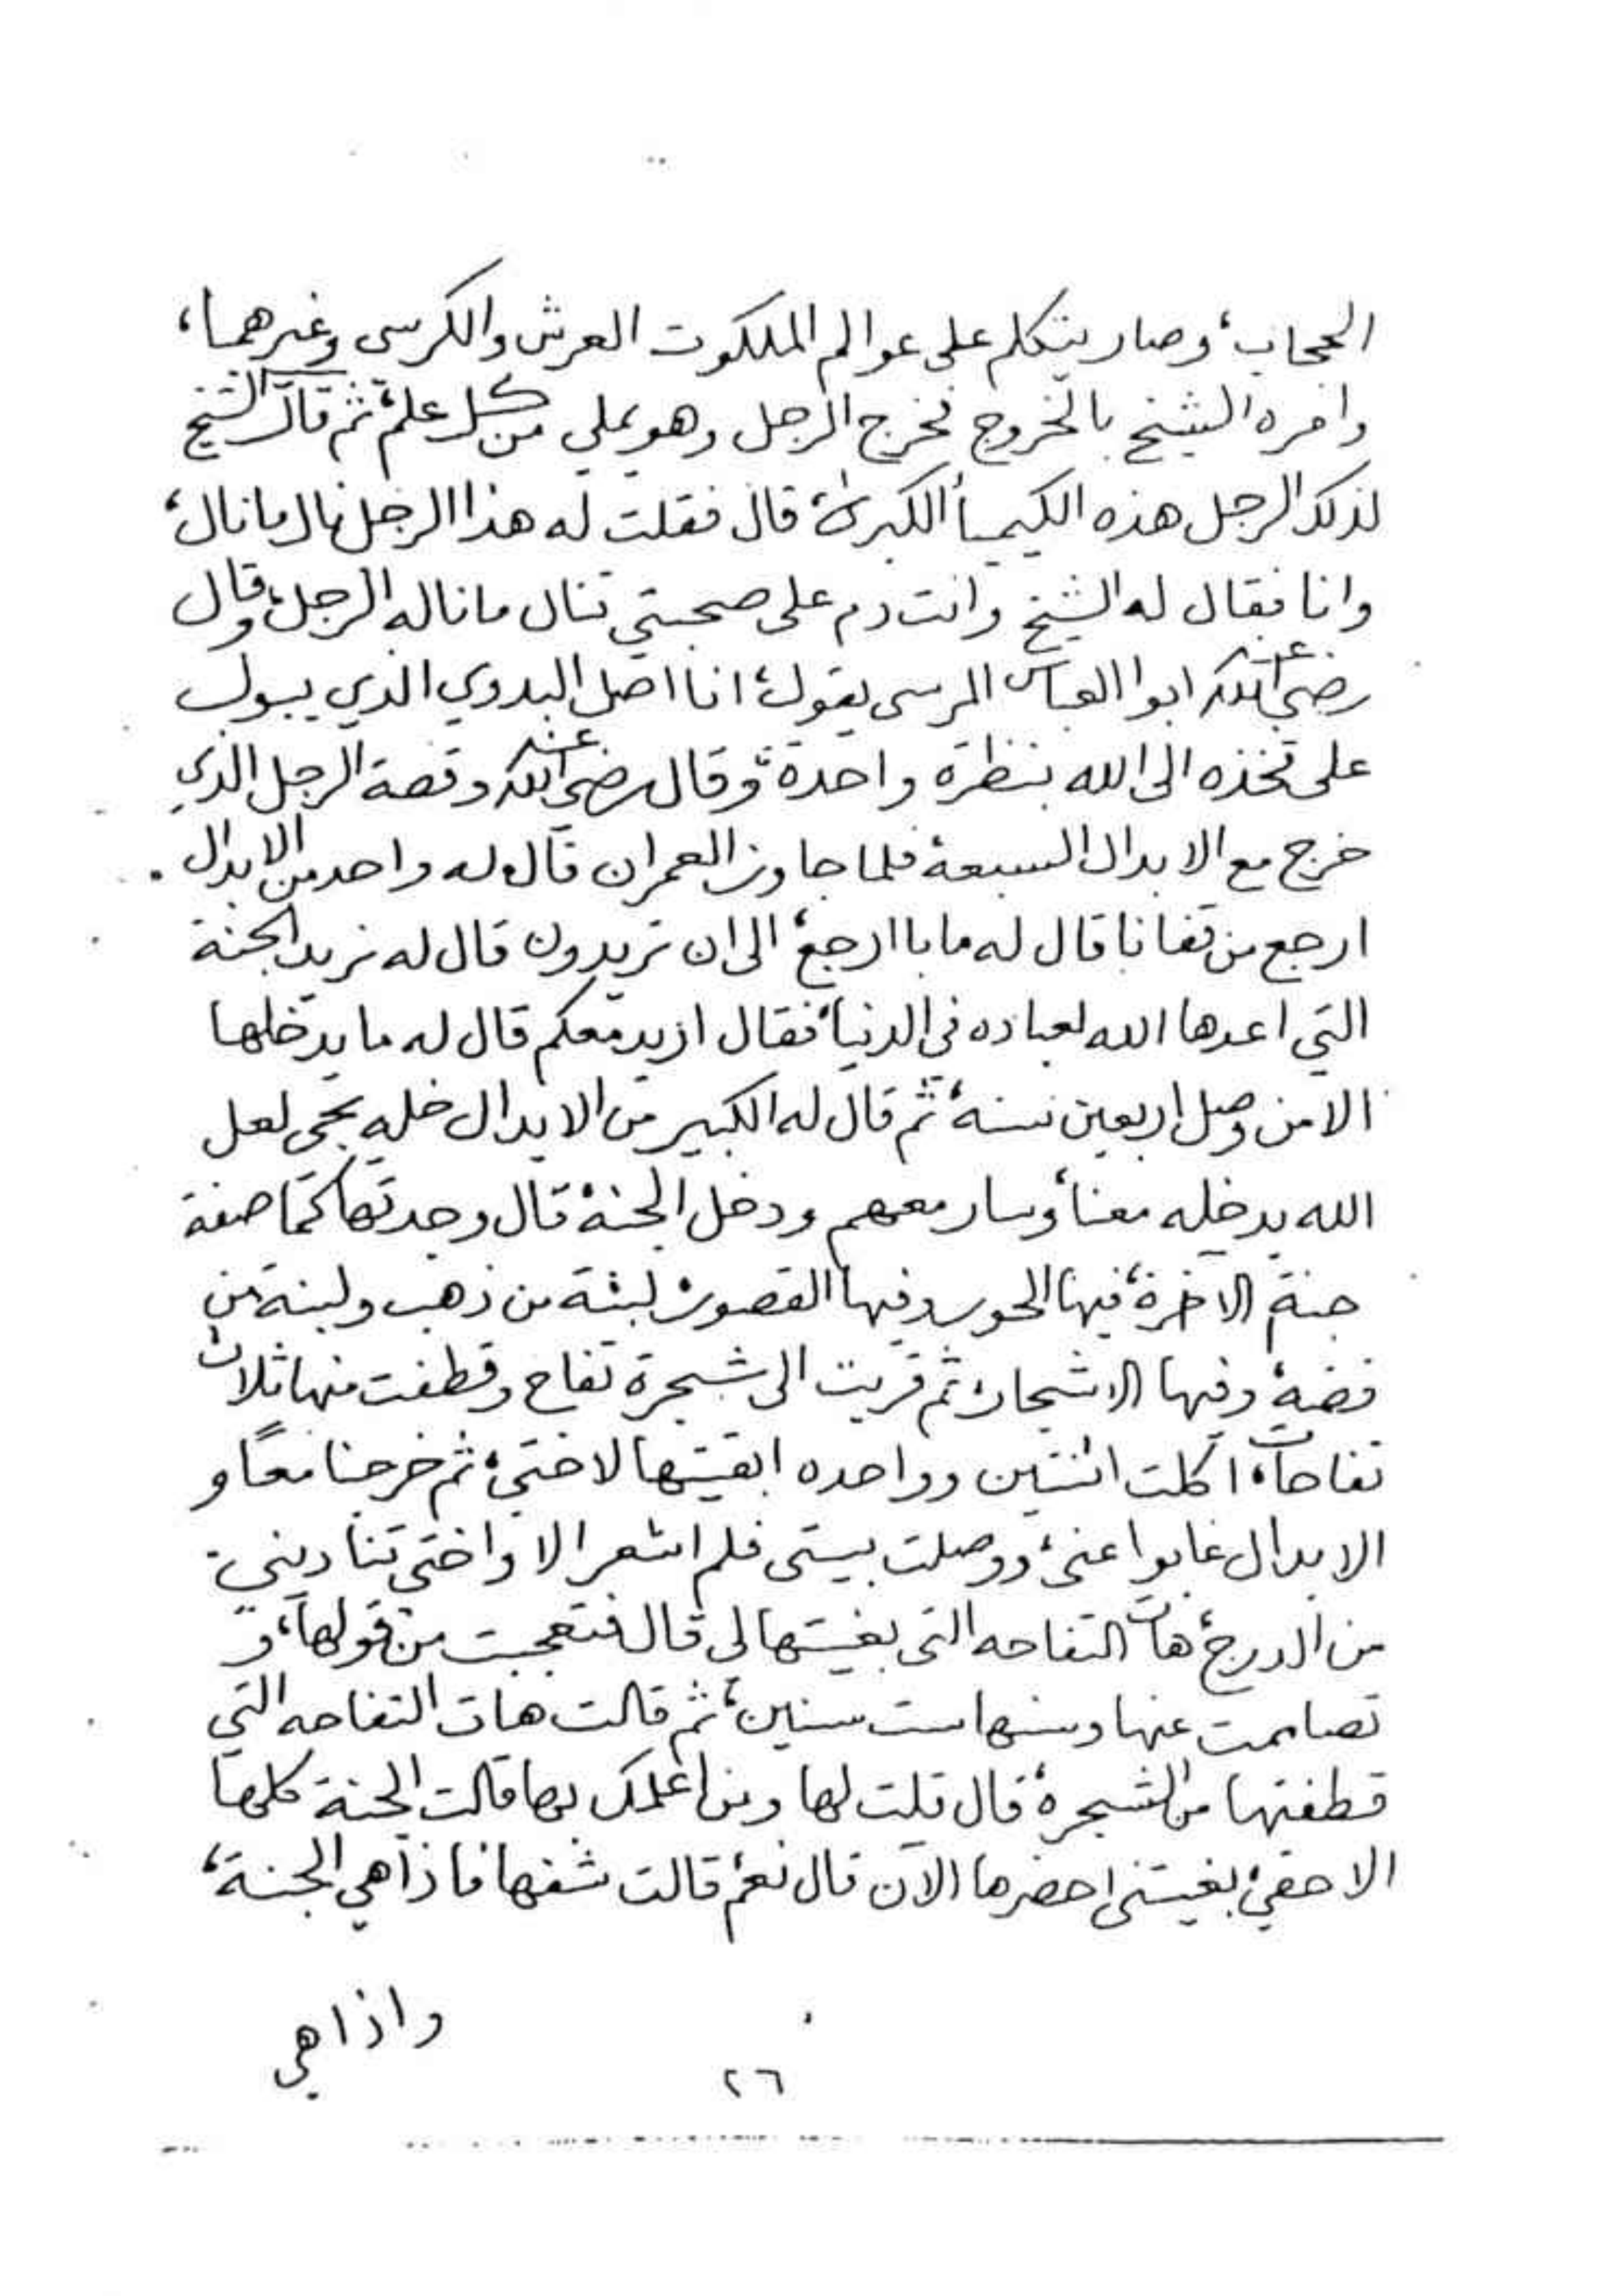 الحجاب، وصار يتكلم على عوالم الملكوت العرش والكرسى وغيرهما،
وامره الشيخ بالخروج فخرج الرجل وهو يملي من كل علم، ثم قال الشيخ
لذلك الرجل هذه الكيميأ الكبرىٰ، قال فقلت له هذا الرجل نال ما نال،
وانا فقال له الشيخ وانت دم على صحبتي تنال ما ناله الرجل، وقال
رضي الله عنه ابوا العباس المرسى يقول، انا اصل البدوي الذي يبول
على فخذه الى الله بنظره واحدة، وقال رضي الله عنه وقصة الرجل الذي
خرج مع الابدال السبعة فلما جاوز العمران قال له واحد من الابدال
ارجع من قفانا قال له ما با ارجع، الى ان تريدون قال له نريد الجنة
التي اعدها الله لعباده في الدنيا، فقال اريد معكم قال له ما يدخلها
الا من وصل اربعين سنه، ثم قال له الكبير من الابدال خليه يجى لعل
الله يدخله معنا، وسار معهم ودخل الجنة، قال وجدتها كما صفة
جنة الاخرة، فيها الحور وفيها القصور، لبنة من ذهب ولبنة من
فضة، وفيها الاشجار، ثم قربت الى شجرة تفاح وقطفت منها ثلاث
تفاحات، اكلت اثنتين وواحده ابقيتها لاختي، ثم خرجنا معًا و
الابدال غابوا عنى، ووصلت بيتى فلم اشعر الا واختى تناديني
من الدرج، هات التفاحه التى بغيتها لى قال فتعجبت من قولها، و
تصاممت عنها وسنها ست سنين، ثم قالت هات التفاحه التي
قطفتها من الشجره، قال قلت لها ومن اعلمك بها قالت الجنة كلها
الا حقي، بغيتنى احضرها الآن قال نعم، قالت شفها فاذا هي الجنة،
واذا هي
٢٦